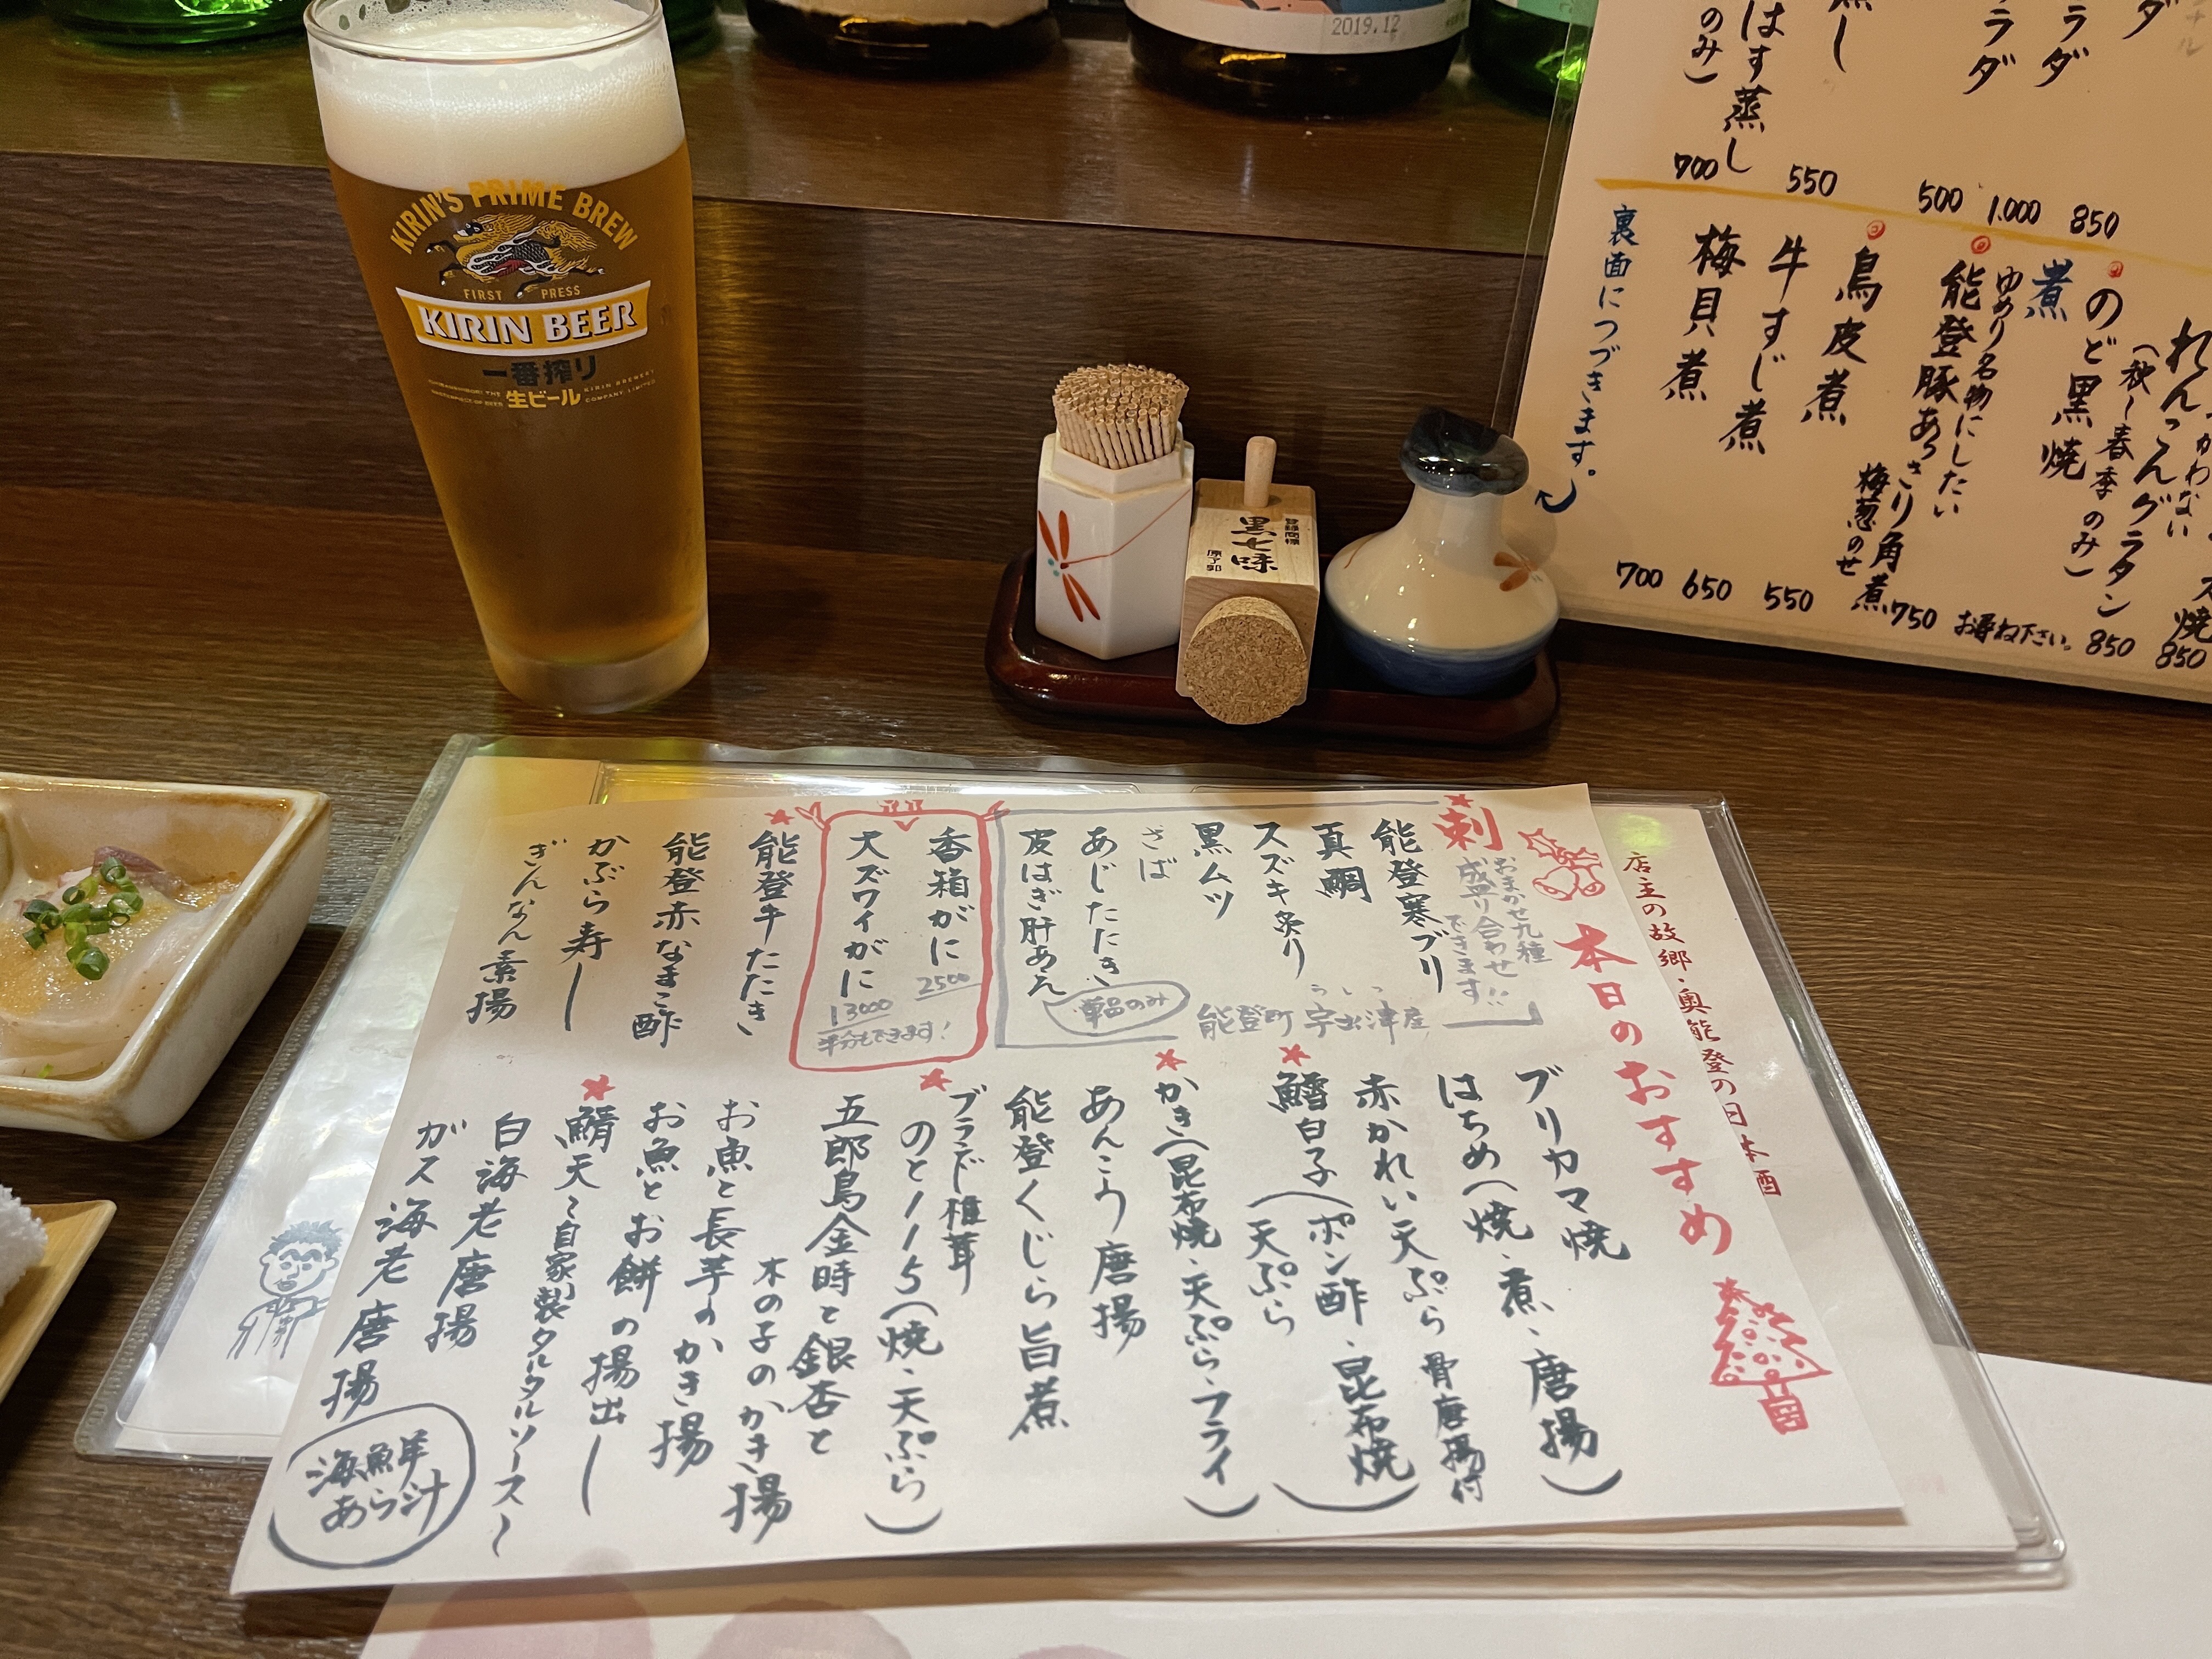 2019.12
KIRIN'S PRIME BREW
FIRST PRESS
KIRIN BEER
一番搾り
生ビール
登録商標
黒七味
原了郭
ラダ
ラダ
はす蒸し
のみ)
850
1.000
500
550
700
れんこんグラタン
(秋〜春季のみ)
850
のど黒焼
850
煮
お尋ね下さい。
ゆめり名物にしたい
能登豚あっさり角煮
750
鳥皮煮
梅葱のせ
550
牛すじ煮
650
梅貝煮
700
裏面につづきます。
店主の故郷・奥能登の日本酒
本日のおすすめ
刺
おまかせ九種
盛り合わせ
できます!!
能登寒ブリ
真鯛
スズキ炙り
黒ムツ
さば
あじたたき
皮はぎ肝あえ
単品のみ
能登町 宇出津産
うしつ
香箱がに
2500
大ズワイがに
13000
半分もできます!
能登牛たたき
能登赤なまこ酢
かぶら寿し
ぎんなん素揚
ブリカマ焼
はちめ(焼・煮・唐揚)
赤かれい天ぷら 骨唐揚付
鱈白子(ポン酢・昆布焼
天ぷら)
かき(昆布焼・天ぷら・フライ)
あんこう唐揚
能登くじら旨煮
ブランド椎茸
のと115(焼・天ぷら)
五郎島金時と銀杏と
木の子のかき揚
お魚と長芋のかき揚
お魚とお餅の揚出し
鯖天〜自家製タルタルソース〜
白海老唐揚
ガス海老唐揚
海鮮
あら汁